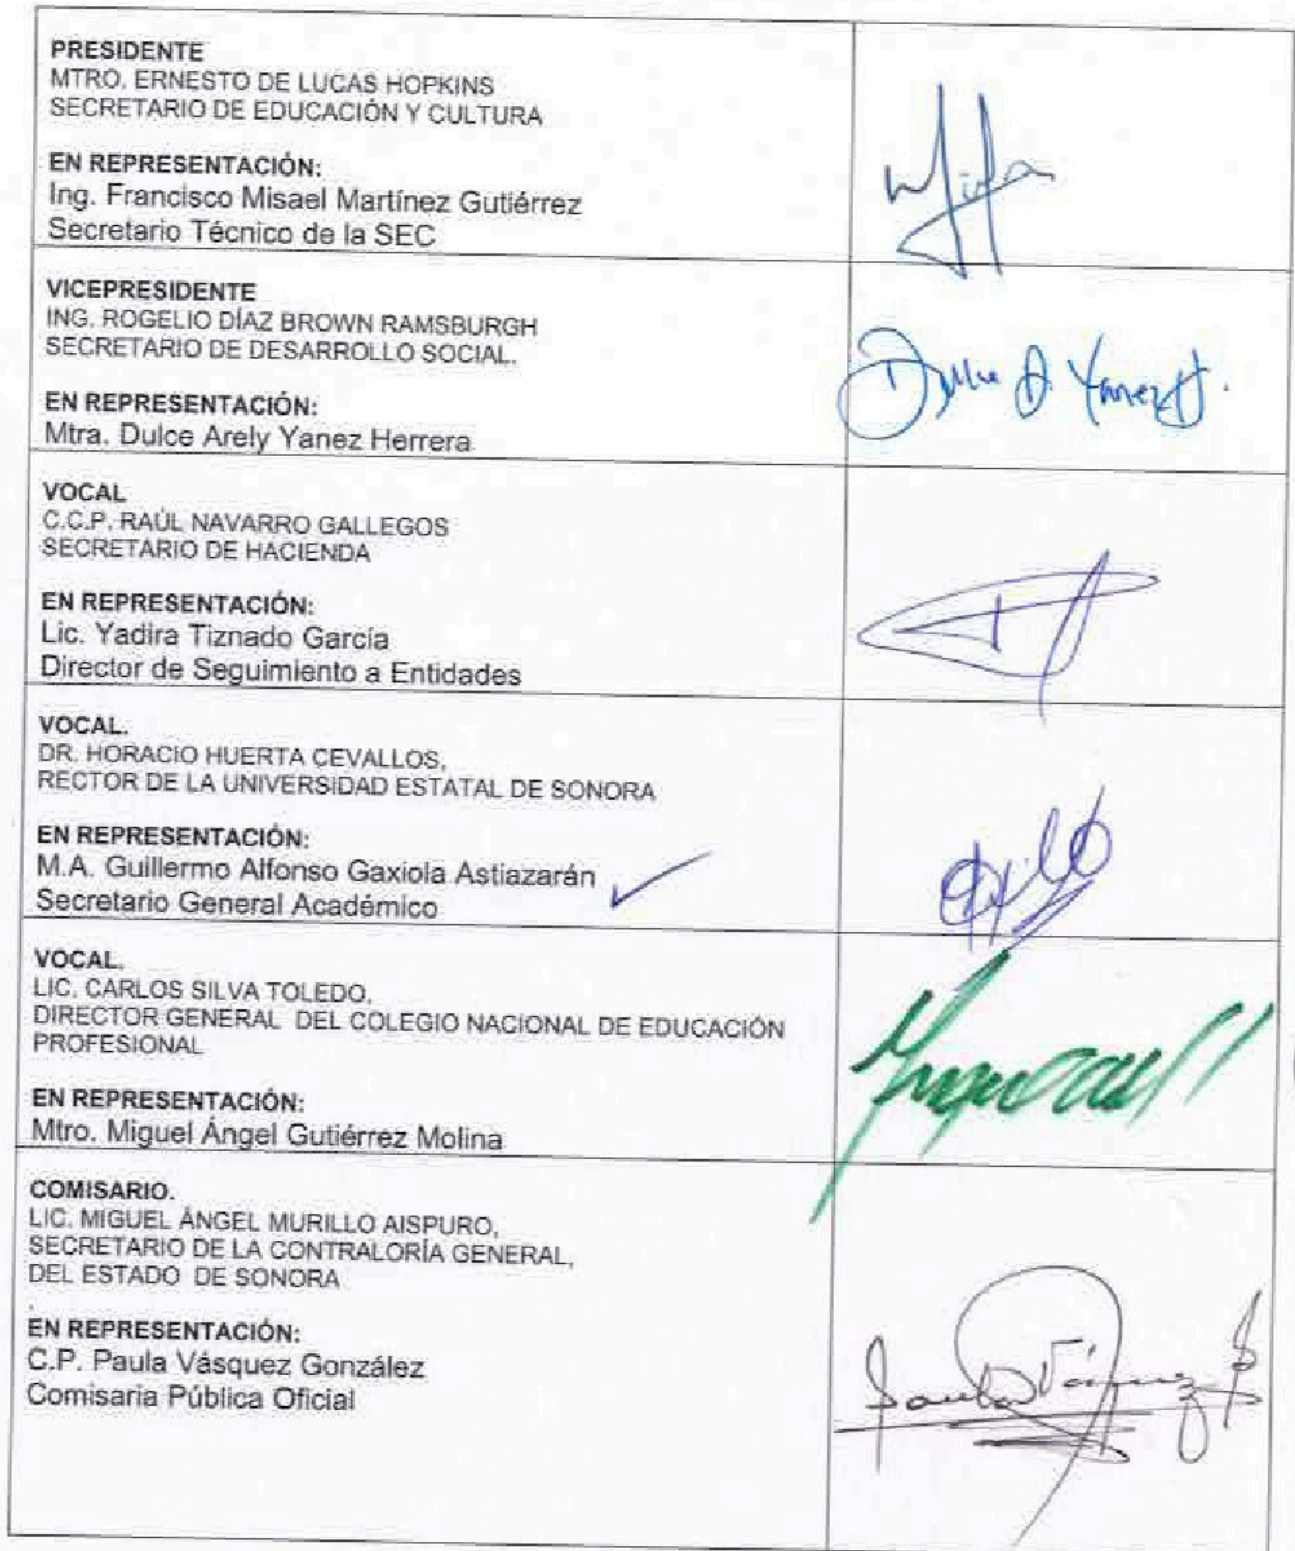 PRESIDENTE
MTRO. ERNESTO DE LUCAS HOPKINS
SECRETARIO DE EDUCACIÓN Y CULTURA
EN REPRESENTACIÓN:
Ing. Francisco Misael Martínez Gutiérrez
Secretario Técnico de la SEC
VICEPRESIDENTE
ING. ROGELIO DÍAZ BROWN RAMSBURGH
SECRETARIO DE DESARROLLO SOCIAL.
EN REPRESENTACIÓN:
Mtra. Dulce Arely Yanez Herrera
Dulce A. Yanez H.
VOCAL
C.C.P. RAÚL NAVARRO GALLEGOS
SECRETARIO DE HACIENDA
EN REPRESENTACIÓN:
Lic. Yadira Tiznado García
Director de Seguimiento a Entidades
VOCAL.
DR. HORACIO HUERTA CEVALLOS,
RECTOR DE LA UNIVERSIDAD ESTATAL DE SONORA
EN REPRESENTACIÓN:
M.A. Guillermo Alfonso Gaxiola Astiazarán
Secretario General Académico
VOCAL.
LIC. CARLOS SILVA TOLEDO,
DIRECTOR GENERAL DEL COLEGIO NACIONAL DE EDUCACIÓN
PROFESIONAL
EN REPRESENTACIÓN:
Mtro. Miguel Ángel Gutiérrez Molina
COMISARIO.
LIC. MIGUEL ÁNGEL MURILLO AISPURO,
SECRETARIO DE LA CONTRALORÍA GENERAL,
DEL ESTADO DE SONORA
.
EN REPRESENTACIÓN:
C.P. Paula Vásquez González
Comisaria Pública Oficial
Paula Vásquez G